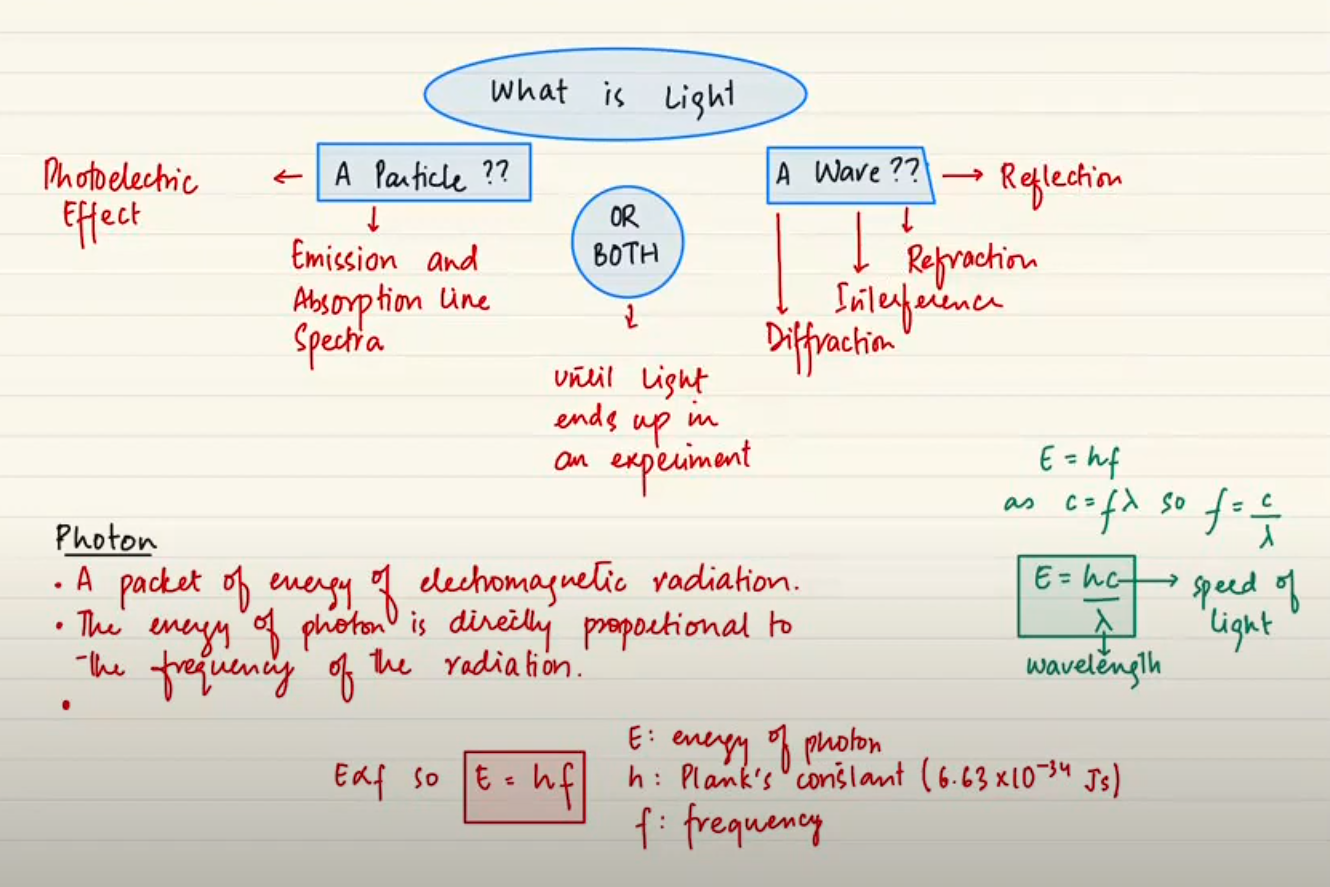 What is Light
A Particle ??
Photoelectric
Effect
Emission and
Absorption Line
Spectra
OR
BOTH
until light
ends up in
an experiment
A Wave ??
Reflection
Refraction
Interference
Diffraction
E = hf
as c = fλ so f = c/λ
E = hc/λ
speed of
light
wavelength
Photon
• A packet of energy of electromagnetic radiation.
• The energy of photon is directly proportional to
the frequency of the radiation.
•
E∝f so E = hf
E: energy of photon
h: Plank's constant (6.63 x 10⁻³⁴ Js)
f: frequency